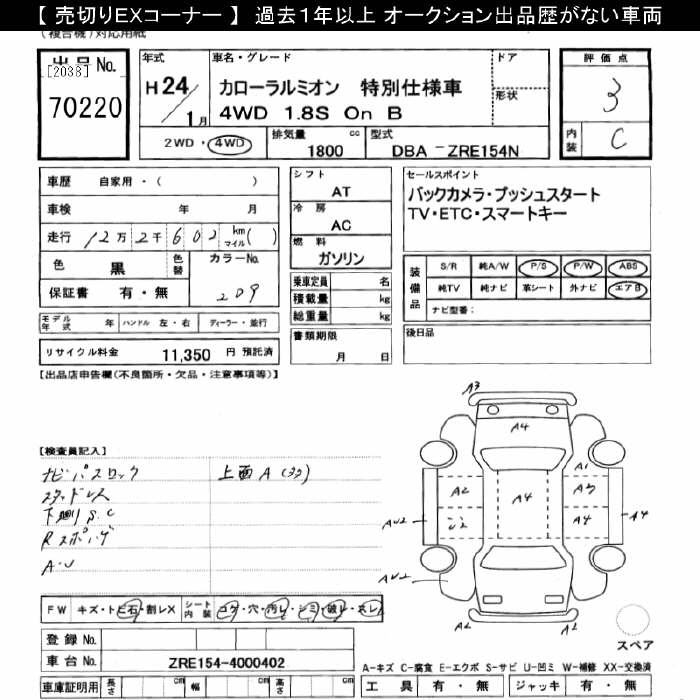 【 売切りEXコーナー 】 過去１年以上 オークション出品歴がない車両
(複合機)対応用紙
出品 No.
[2038]
70220
年式
H 24/1月
車名・グレード
カローラルミオン 特別仕様車
4WD 1.8S On B
ドア
形状
評価点
3
内装
C
2WD・4WD
排気量 1800 cc
型式 DBA － ZRE154N
車歴 自家用・( )
車検 年 月
走行 12万 2千 602 km マイル ( )
色 黒
色替
カラーNo.
209
保証書 有・無
モデル年式 年
ハンドル 左・右
ディーラー・並行
リサイクル料金 11,350 円 預託済
シフト
AT
冷房
AC
燃料
ガソリン
乗車定員 名
積載量 kg
総重量 kg
書類期限
月 日
セールスポイント
バックカメラ・プッシュスタート
TV・ETC・スマートキー
装備品
S/R 純A/W P/S P/W ABS
純TV 純ナビ 革シート 外ナビ エアB
ナビ型番：
後日品
【出品店申告欄(不良箇所・欠品・注意事項等)】
【検査員記入】
ナビパスロック
スタッドレス
下廻り S.C
Rスポハゲ
A・U
上面 A (ヨク)
A3
A4
A1
A2
A4
A3
AU2
U2
A4
A4
AU2
A2
A2
FW キズ・トビ石・割レX
シート内装 コゲ・穴・汚レ・シミ・破レ・スレ
登録 No.
車台 No. ZRE154-4000402
車庫証明用 長さ cm 幅 cm 高さ cm
スペア
A-キズ C-腐食 E-エクボ S-サビ U-凹ミ W-補修 XX-交換済
工具 有・無 ジャッキ 有・無